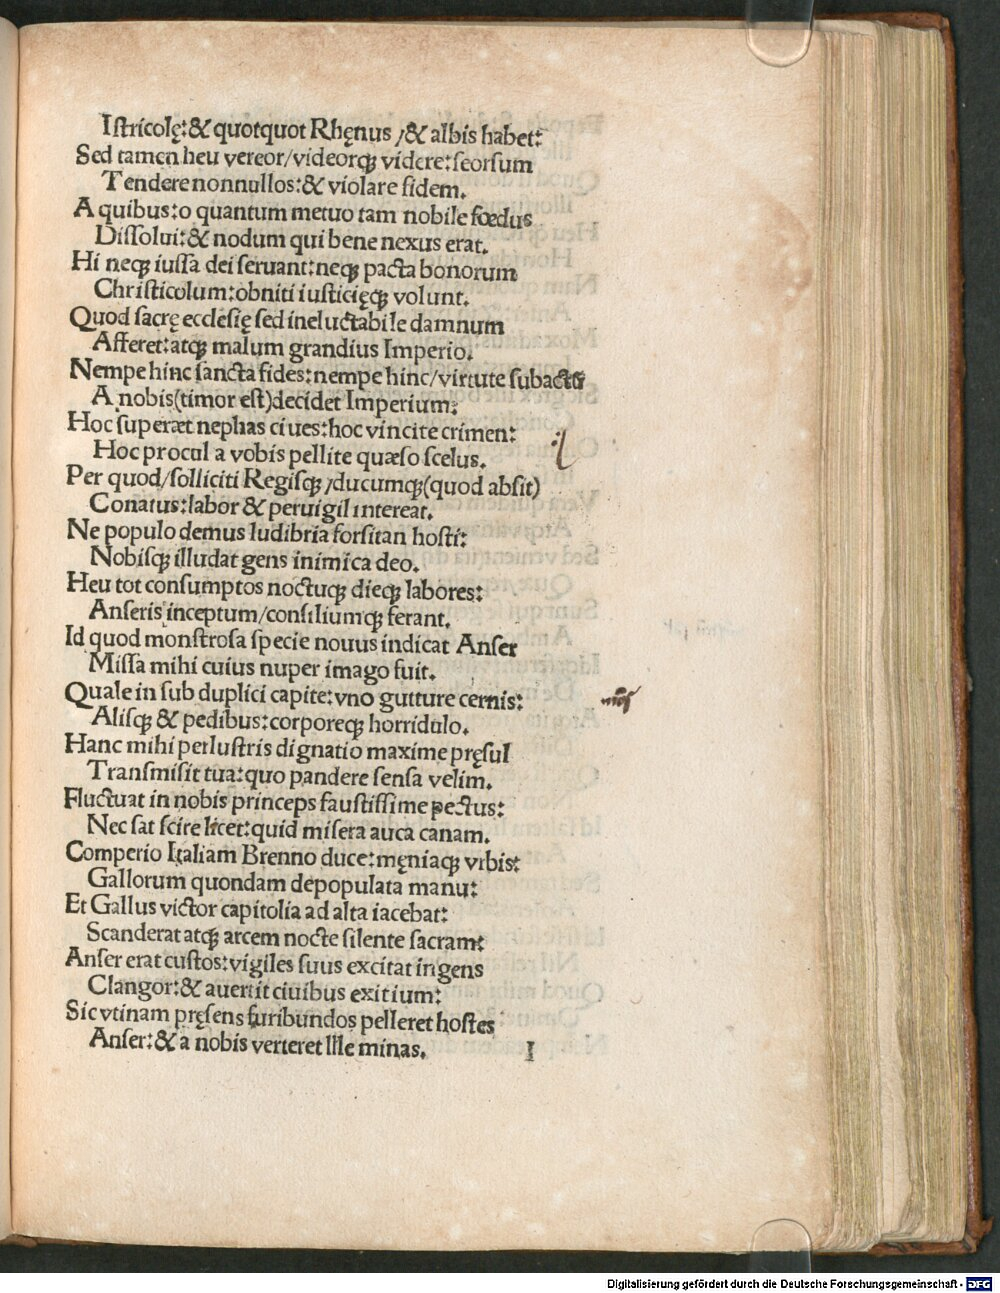 Istricolę:& quotquot Rhęnus /& albis habet:
Sed tamen heu vereor/videorqꝫ videre:seorsum
Tendere nonnullos:& violare fidem.
A quibus:o quantum metuo tam nobile fœdus
Dissolui:& nodum qui bene nexus erat.
Hi neqꝫ iussa dei seruant:neqꝫ pacta bonorum
Christicolum:obniti iusticięqꝫ volunt.
Quod sacrę ecclesię sed ineluctabile damnum
Afferet:atqꝫ malum grandius Imperio.
Nempe hinc sancta fides:nempe hinc/virtute subacta
A nobis(timor est)decidet Imperium:
Hoc superæt nephas ciues:hoc vincite crimen:
Hoc procul a vobis pellite quæso scelus.
Per quod/solliciti Regisqꝫ /ducumqꝫ(quod absit)
Conatus:labor & peruigil intereat.
Ne populo demus ludibria forsitan hosti:
Nobisqꝫ illudat gens inimica deo.
Heu tot consumptos noctuqꝫ dieqꝫ labores:
Anseris inceptum/consiliumqꝫ ferant.
Id quod monstrosa specie nouus indicat Anser
Missa mihi cuius nuper imago fuit.
Quale in sub duplici capite:vno gutture cernis:
Alisqꝫ & pedibus:corporeqꝫ horridulo.
Hanc mihi perlustris dignatio maxime pręsul
Transmisit tua:quo pandere sensa velim.
Fluctuat in nobis princeps faustissime pectus:
Nec sat scire licet:quid misera auca canam.
Comperio Italiam Brenno duce:męniaqꝫ vrbis:
Gallorum quondam depopulata manu:
Et Gallus victor capitolia ad alta iacebat:
Scanderat atqꝫ arcem nocte silente sacram:
Anser erat custos:vigiles suus excitat ingens
Clangor:& auertit ciuibus exitium:
Sic vtinam pręsens furibundos pelleret hostes
Anser:& a nobis verteret Ille minas.
I
Digitalisierung gefördert durch die Deutsche Forschungsgemeinschaft - DFG